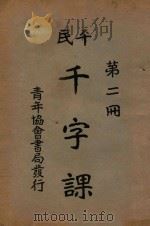 平民
第二冊
千字課
青年協會書局發行